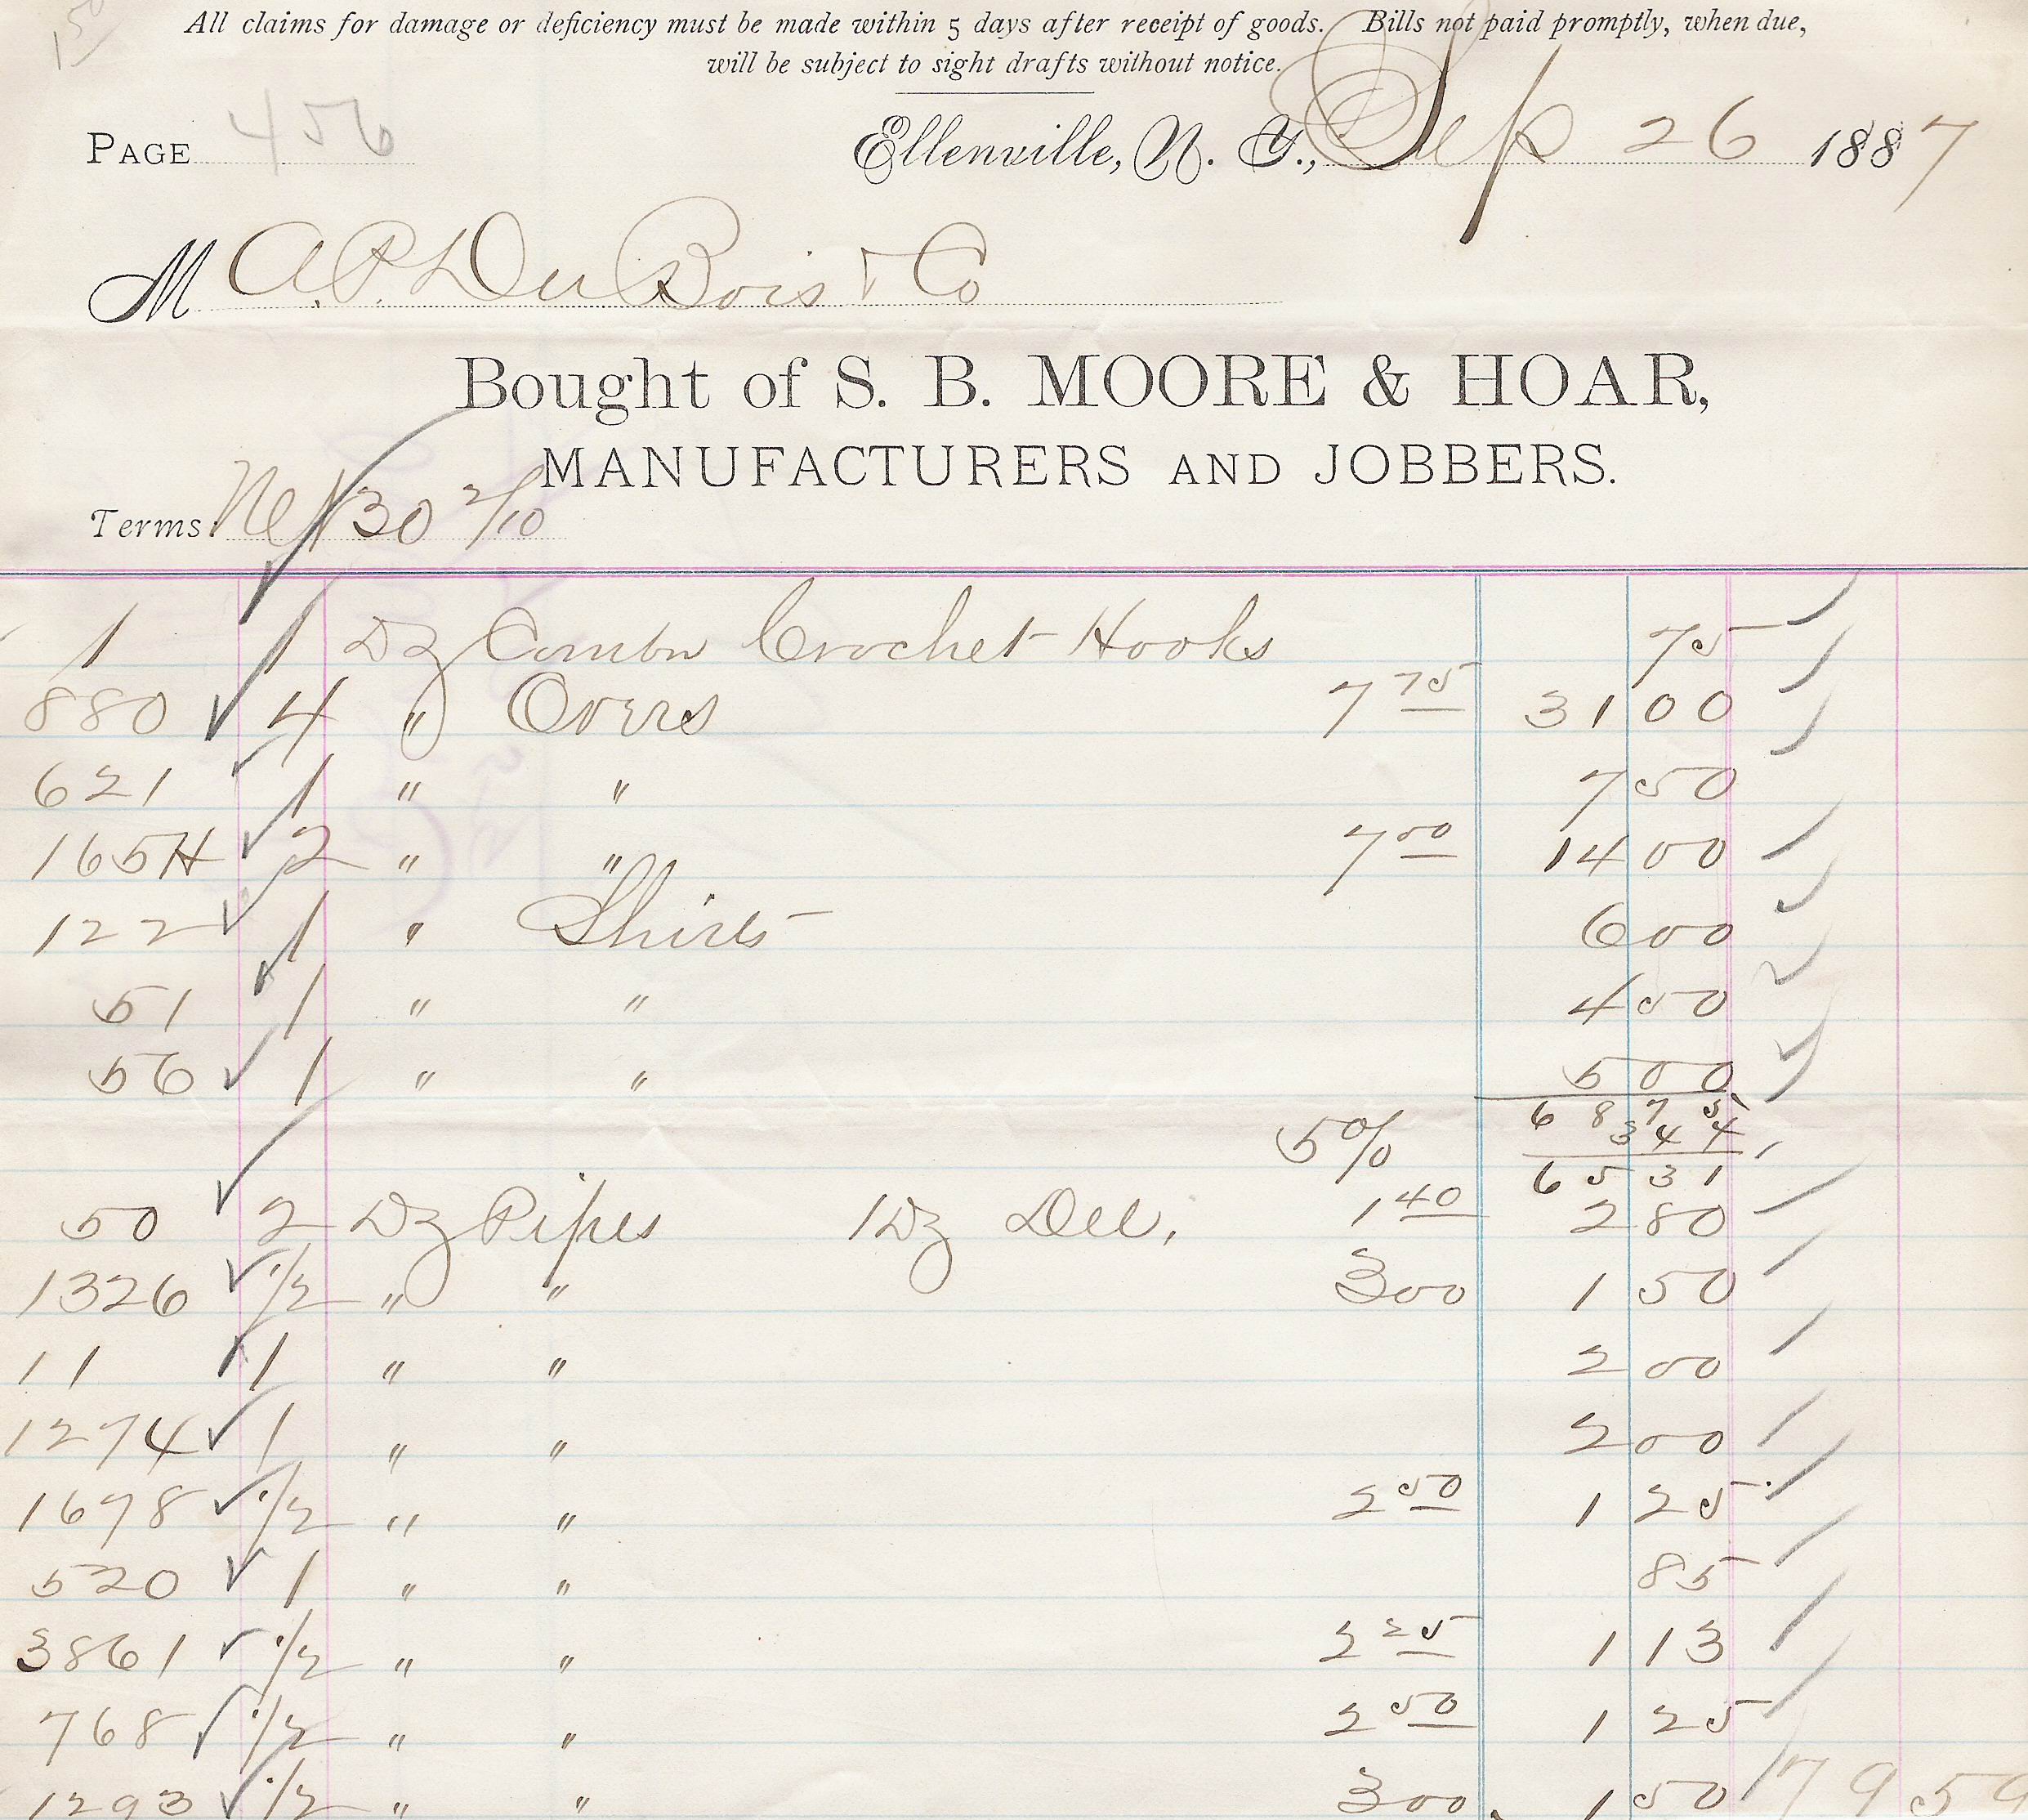 All claims for damage or deficiency must be made within 5 days after receipt of goods. Bills not paid promptly, when due,
will be subject to sight drafts without notice.
PAGE 456 Ellenville, N. Y., Sep 26 1887
M A. P. Du Bois & Co
Bought of S. B. MOORE & HOAR,
MANUFACTURERS AND JOBBERS.
Terms Net 30 2/10
1 1 Dz Combn Crochet Hooks 75
880 4 " Overs 7 75 31 00
621 1 " " 7 50
165H 2 " " 7 00 14 00
122 1 " Shirts 6 00
51 1 " " 4 50
56 1 " " 5 00
68 75
5% 3 44
65 31
50 2 Dz Pipes 1 Dz Del. 1 40 2 80
1326 1/2 " " 3 00 1 50
11 1 " " 2 00
1274 1 " " 2 00
1678 1/2 " " 2 50 1 25
520 1 " " 85
3861 1/2 " " 2 25 1 13
768 1/2 " " 2 50 1 25
1293 1/2 " " 3 00 1 50 79 59